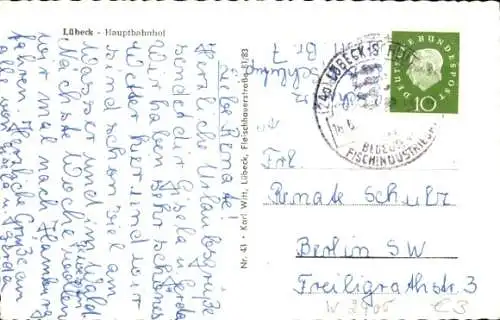 Lübeck - Hauptbahnhof
Liebe Renate!
Herzliche Urlaubsgrüße
sendet Dir Gisela u. Gerda
Wir haben sehr schönes
Wetter hier und wir
sind schon viel am
Wasser und im Wald
Nächste Woche wollen
wir mal nach Hamburg
fahren. Herzliche Grüße an
alle von Gisela u. Gerda
Nr. 43 • Karl Witt, Lübeck, Fleischhauerstraße 81/83
(24a) LÜBECK
FISCHINDUSTRIE
DEUTSCHE BUNDESPOST
10
Frl.
Renate Schulz
Berlin SW
Freiligrathstr. 3